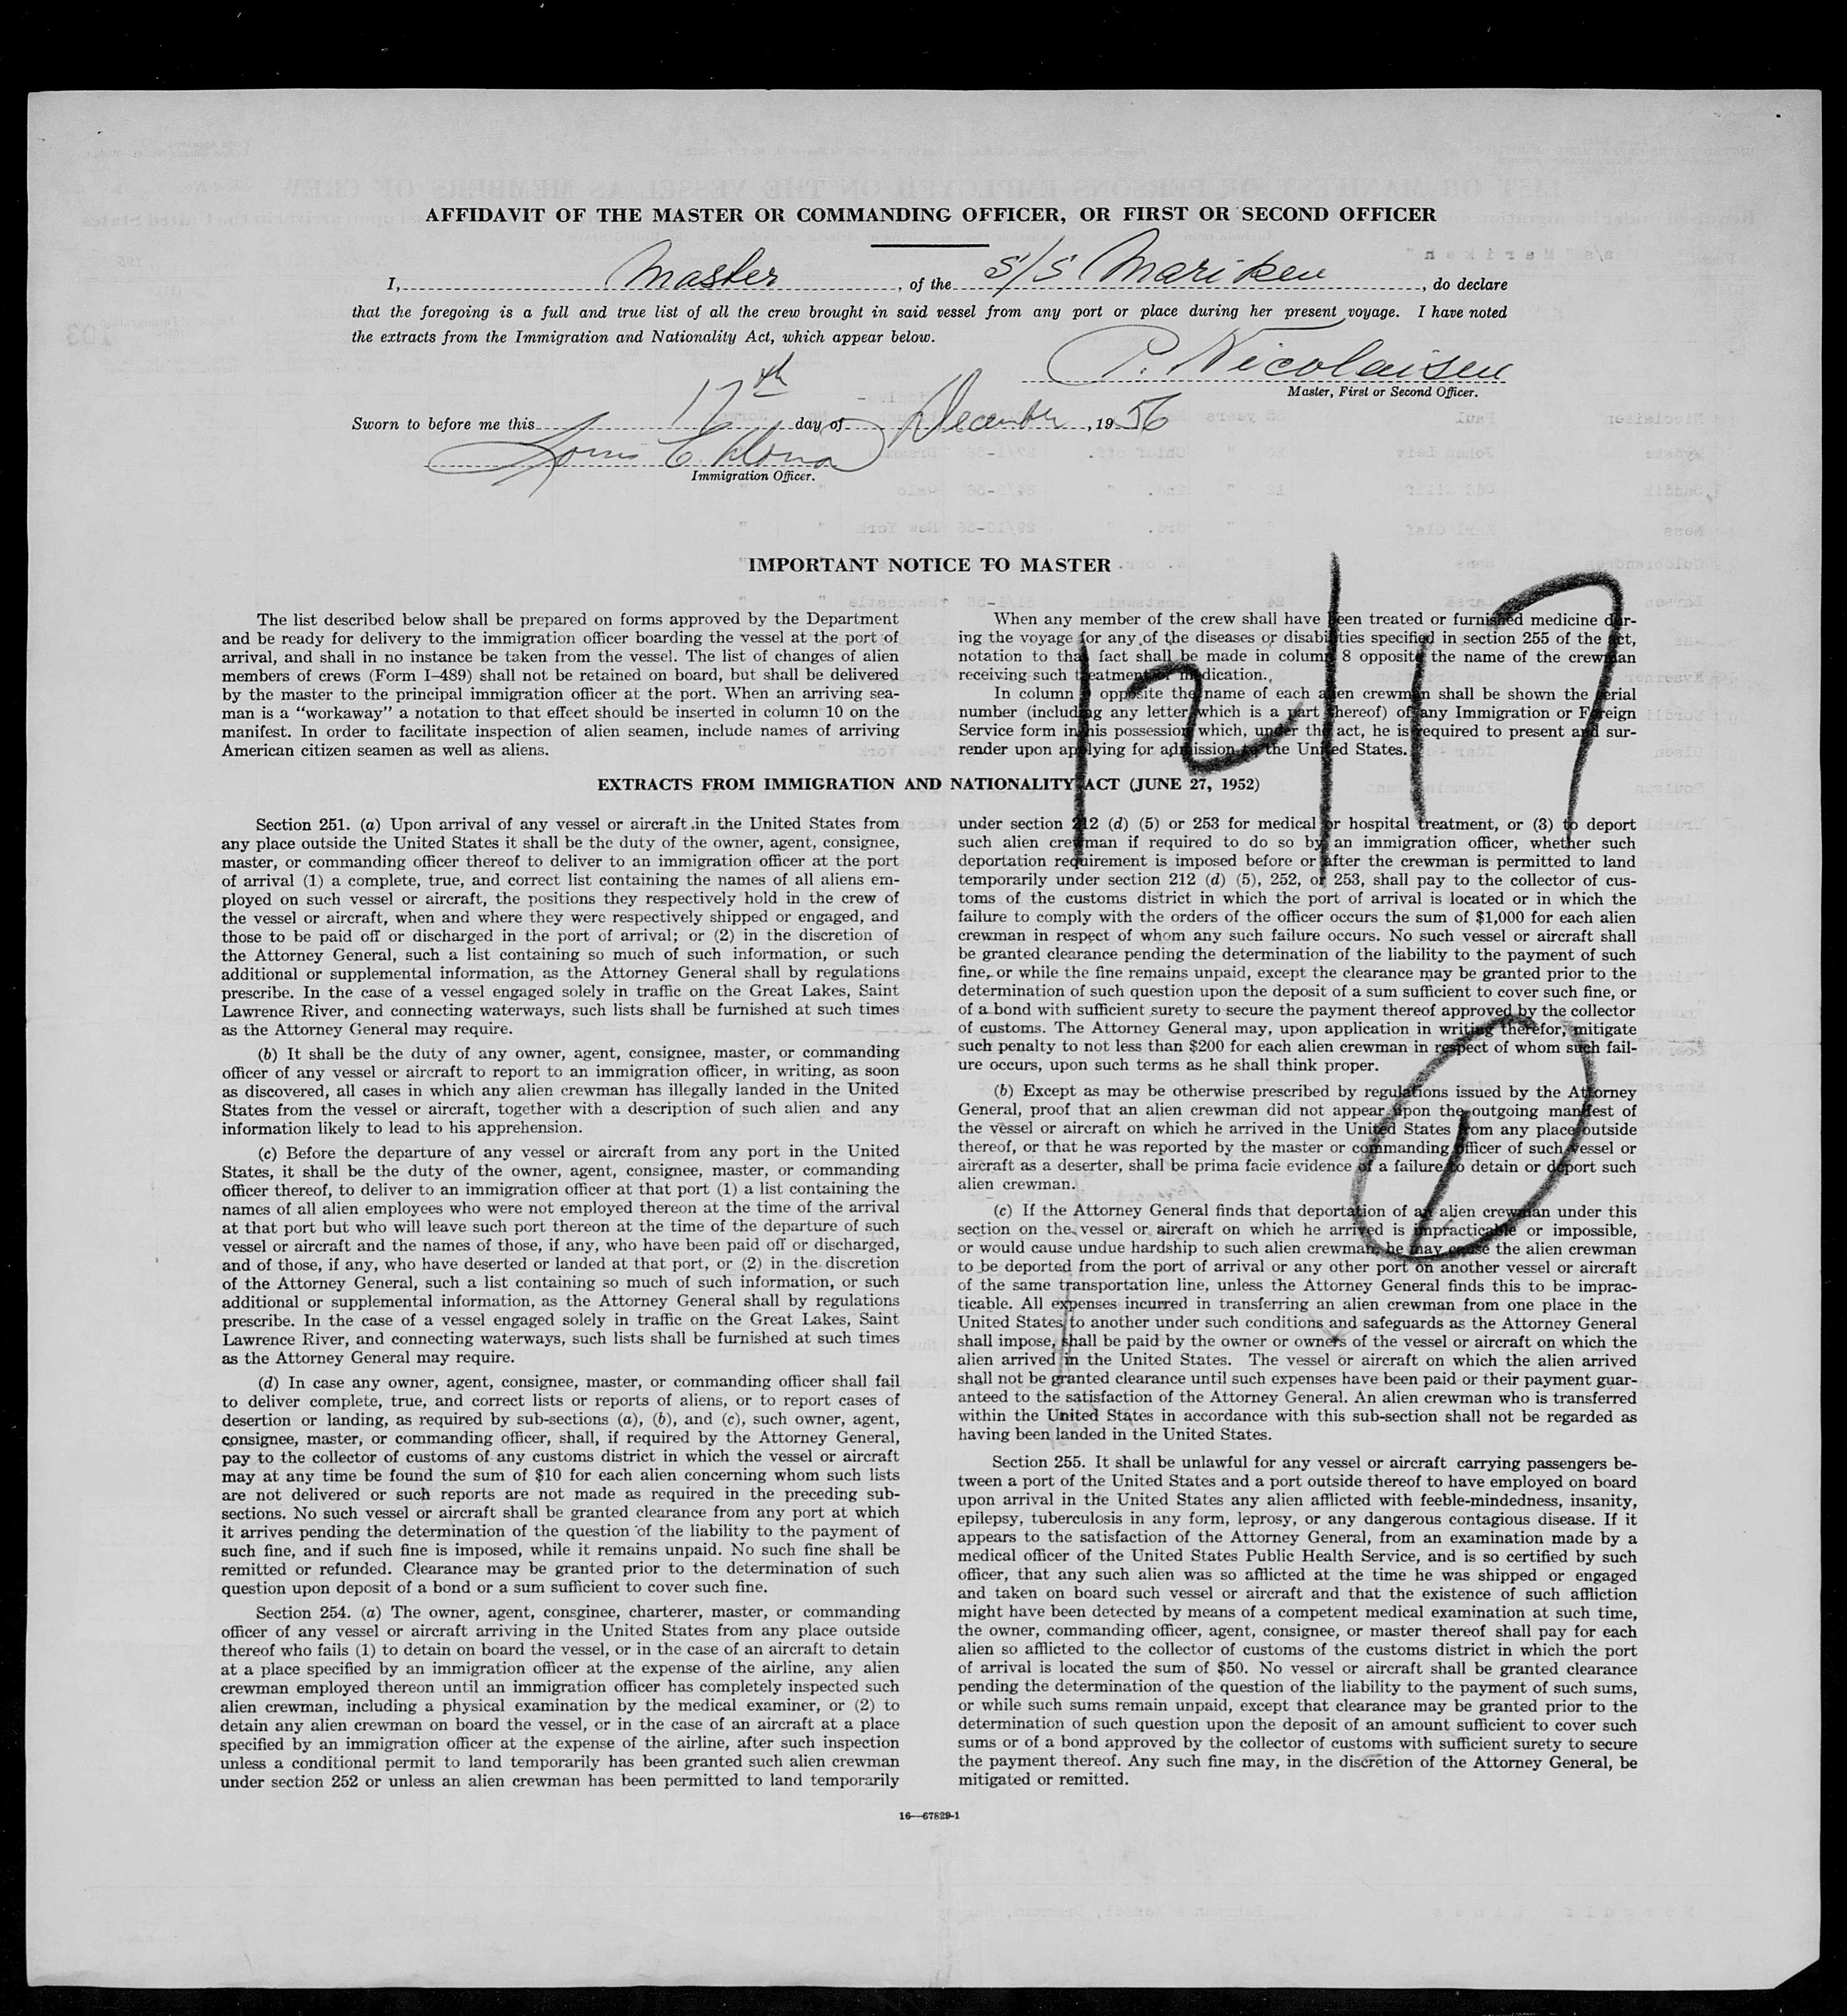 AFFIDAVIT OF THE MASTER OR COMMANDING OFFICER, OR FIRST OR SECOND OFFICER
I, Master, of the S/S Mariken, do declare
that the foregoing is a full and true list of all the crew brought in said vessel from any port or place during her present voyage. I have noted
the extracts from the Immigration and Nationality Act, which appear below.
P. Nicolaisen
Master, First or Second Officer.
Sworn to before me this 17th day of December, 1956
Immigration Officer.
IMPORTANT NOTICE TO MASTER
The list described below shall be prepared on forms approved by the Department
and be ready for delivery to the immigration officer boarding the vessel at the port of
arrival, and shall in no instance be taken from the vessel. The list of changes of alien
members of crews (Form I–489) shall not be retained on board, but shall be delivered
by the master to the principal immigration officer at the port. When an arriving sea-
man is a “workaway” a notation to that effect should be inserted in column 10 on the
manifest. In order to facilitate inspection of alien seamen, include names of arriving
American citizen seamen as well as aliens.
When any member of the crew shall have been treated or furnished medicine dur-
ing the voyage for any of the diseases or disabilities specified in section 255 of the act,
notation to that fact shall be made in column 8 opposite the name of the crewman
receiving such treatment or medication.
In column opposite the name of each alien crewman shall be shown the serial
number (including any letter which is a part thereof) of any Immigration or Foreign
Service form in his possession which, under the act, he is required to present and sur-
render upon applying for admission to the United States.
12/17
1
EXTRACTS FROM IMMIGRATION AND NATIONALITY ACT (JUNE 27, 1952)
Section 251. (a) Upon arrival of any vessel or aircraft in the United States from
any place outside the United States it shall be the duty of the owner, agent, consignee,
master, or commanding officer thereof to deliver to an immigration officer at the port
of arrival (1) a complete, true, and correct list containing the names of all aliens em-
ployed on such vessel or aircraft, the positions they respectively hold in the crew of
the vessel or aircraft, when and where they were respectively shipped or engaged, and
those to be paid off or discharged in the port of arrival; or (2) in the discretion of
the Attorney General, such a list containing so much of such information, or such
additional or supplemental information, as the Attorney General shall by regulations
prescribe. In the case of a vessel engaged solely in traffic on the Great Lakes, Saint
Lawrence River, and connecting waterways, such lists shall be furnished at such times
as the Attorney General may require.
(b) It shall be the duty of any owner, agent, consignee, master, or commanding
officer of any vessel or aircraft to report to an immigration officer, in writing, as soon
as discovered, all cases in which any alien crewman has illegally landed in the United
States from the vessel or aircraft, together with a description of such alien and any
information likely to lead to his apprehension.
(c) Before the departure of any vessel or aircraft from any port in the United
States, it shall be the duty of the owner, agent, consignee, master, or commanding
officer thereof, to deliver to an immigration officer at that port (1) a list containing the
names of all alien employees who were not employed thereon at the time of the arrival
at that port but who will leave such port thereon at the time of the departure of such
vessel or aircraft and the names of those, if any, who have been paid off or discharged,
and of those, if any, who have deserted or landed at that port, or (2) in the discretion
of the Attorney General, such a list containing so much of such information, or such
additional or supplemental information, as the Attorney General shall by regulations
prescribe. In the case of a vessel engaged solely in traffic on the Great Lakes, Saint
Lawrence River, and connecting waterways, such lists shall be furnished at such times
as the Attorney General may require.
(d) In case any owner, agent, consignee, master, or commanding officer shall fail
to deliver complete, true, and correct lists or reports of aliens, or to report cases of
desertion or landing, as required by sub-sections (a), (b), and (c), such owner, agent,
consignee, master, or commanding officer, shall, if required by the Attorney General,
pay to the collector of customs of any customs district in which the vessel or aircraft
may at any time be found the sum of $10 for each alien concerning whom such lists
are not delivered or such reports are not made as required in the preceding sub-
sections. No such vessel or aircraft shall be granted clearance from any port at which
it arrives pending the determination of the question of the liability to the payment of
such fine, and if such fine is imposed, while it remains unpaid. No such fine shall be
remitted or refunded. Clearance may be granted prior to the determination of such
question upon deposit of a bond or a sum sufficient to cover such fine.
Section 254. (a) The owner, agent, consginee, charterer, master, or commanding
officer of any vessel or aircraft arriving in the United States from any place outside
thereof who fails (1) to detain on board the vessel, or in the case of an aircraft to detain
at a place specified by an immigration officer at the expense of the airline, any alien
crewman employed thereon until an immigration officer has completely inspected such
alien crewman, including a physical examination by the medical examiner, or (2) to
detain any alien crewman on board the vessel, or in the case of an aircraft at a place
specified by an immigration officer at the expense of the airline, after such inspection
unless a conditional permit to land temporarily has been granted such alien crewman
under section 252 or unless an alien crewman has been permitted to land temporarily
under section 212 (d) (5) or 253 for medical or hospital treatment, or (3) to deport
such alien crewman if required to do so by an immigration officer, whether such
deportation requirement is imposed before or after the crewman is permitted to land
temporarily under section 212 (d) (5), 252, or 253, shall pay to the collector of cus-
toms of the customs district in which the port of arrival is located or in which the
failure to comply with the orders of the officer occurs the sum of $1,000 for each alien
crewman in respect of whom any such failure occurs. No such vessel or aircraft shall
be granted clearance pending the determination of the liability to the payment of such
fine, or while the fine remains unpaid, except the clearance may be granted prior to the
determination of such question upon the deposit of a sum sufficient to cover such fine, or
of a bond with sufficient surety to secure the payment thereof approved by the collector
of customs. The Attorney General may, upon application in writing therefor, mitigate
such penalty to not less than $200 for each alien crewman in respect of whom such fail-
ure occurs, upon such terms as he shall think proper.
(b) Except as may be otherwise prescribed by regulations issued by the Attorney
General, proof that an alien crewman did not appear upon the outgoing manifest of
the vessel or aircraft on which he arrived in the United States from any place outside
thereof, or that he was reported by the master or commanding officer of such vessel or
aircraft as a deserter, shall be prima facie evidence of a failure to detain or deport such
alien crewman.
(c) If the Attorney General finds that deportation of an alien crewman under this
section on the vessel or aircraft on which he arrived is impracticable or impossible,
or would cause undue hardship to such alien crewman, he may cause the alien crewman
to be deported from the port of arrival or any other port on another vessel or aircraft
of the same transportation line, unless the Attorney General finds this to be imprac-
ticable. All expenses incurred in transferring an alien crewman from one place in the
United States to another under such conditions and safeguards as the Attorney General
shall impose, shall be paid by the owner or owners of the vessel or aircraft on which the
alien arrived in the United States. The vessel or aircraft on which the alien arrived
shall not be granted clearance until such expenses have been paid or their payment guar-
anteed to the satisfaction of the Attorney General. An alien crewman who is transferred
within the United States in accordance with this sub-section shall not be regarded as
having been landed in the United States.
Section 255. It shall be unlawful for any vessel or aircraft carrying passengers be-
tween a port of the United States and a port outside thereof to have employed on board
upon arrival in the United States any alien afflicted with feeble-mindedness, insanity,
epilepsy, tuberculosis in any form, leprosy, or any dangerous contagious disease. If it
appears to the satisfaction of the Attorney General, from an examination made by a
medical officer of the United States Public Health Service, and is so certified by such
officer, that any such alien was so afflicted at the time he was shipped or engaged
and taken on board such vessel or aircraft and that the existence of such affliction
might have been detected by means of a competent medical examination at such time,
the owner, commanding officer, agent, consignee, or master thereof shall pay for each
alien so afflicted to the collector of customs of the customs district in which the port
of arrival is located the sum of $50. No vessel or aircraft shall be granted clearance
pending the determination of the question of the liability to the payment of such sums,
or while such sums remain unpaid, except that clearance may be granted prior to the
determination of such question upon the deposit of an amount sufficient to cover such
sums or of a bond approved by the collector of customs with sufficient surety to secure
the payment thereof. Any such fine may, in the discretion of the Attorney General, be
mitigated or remitted.
16—67829-1